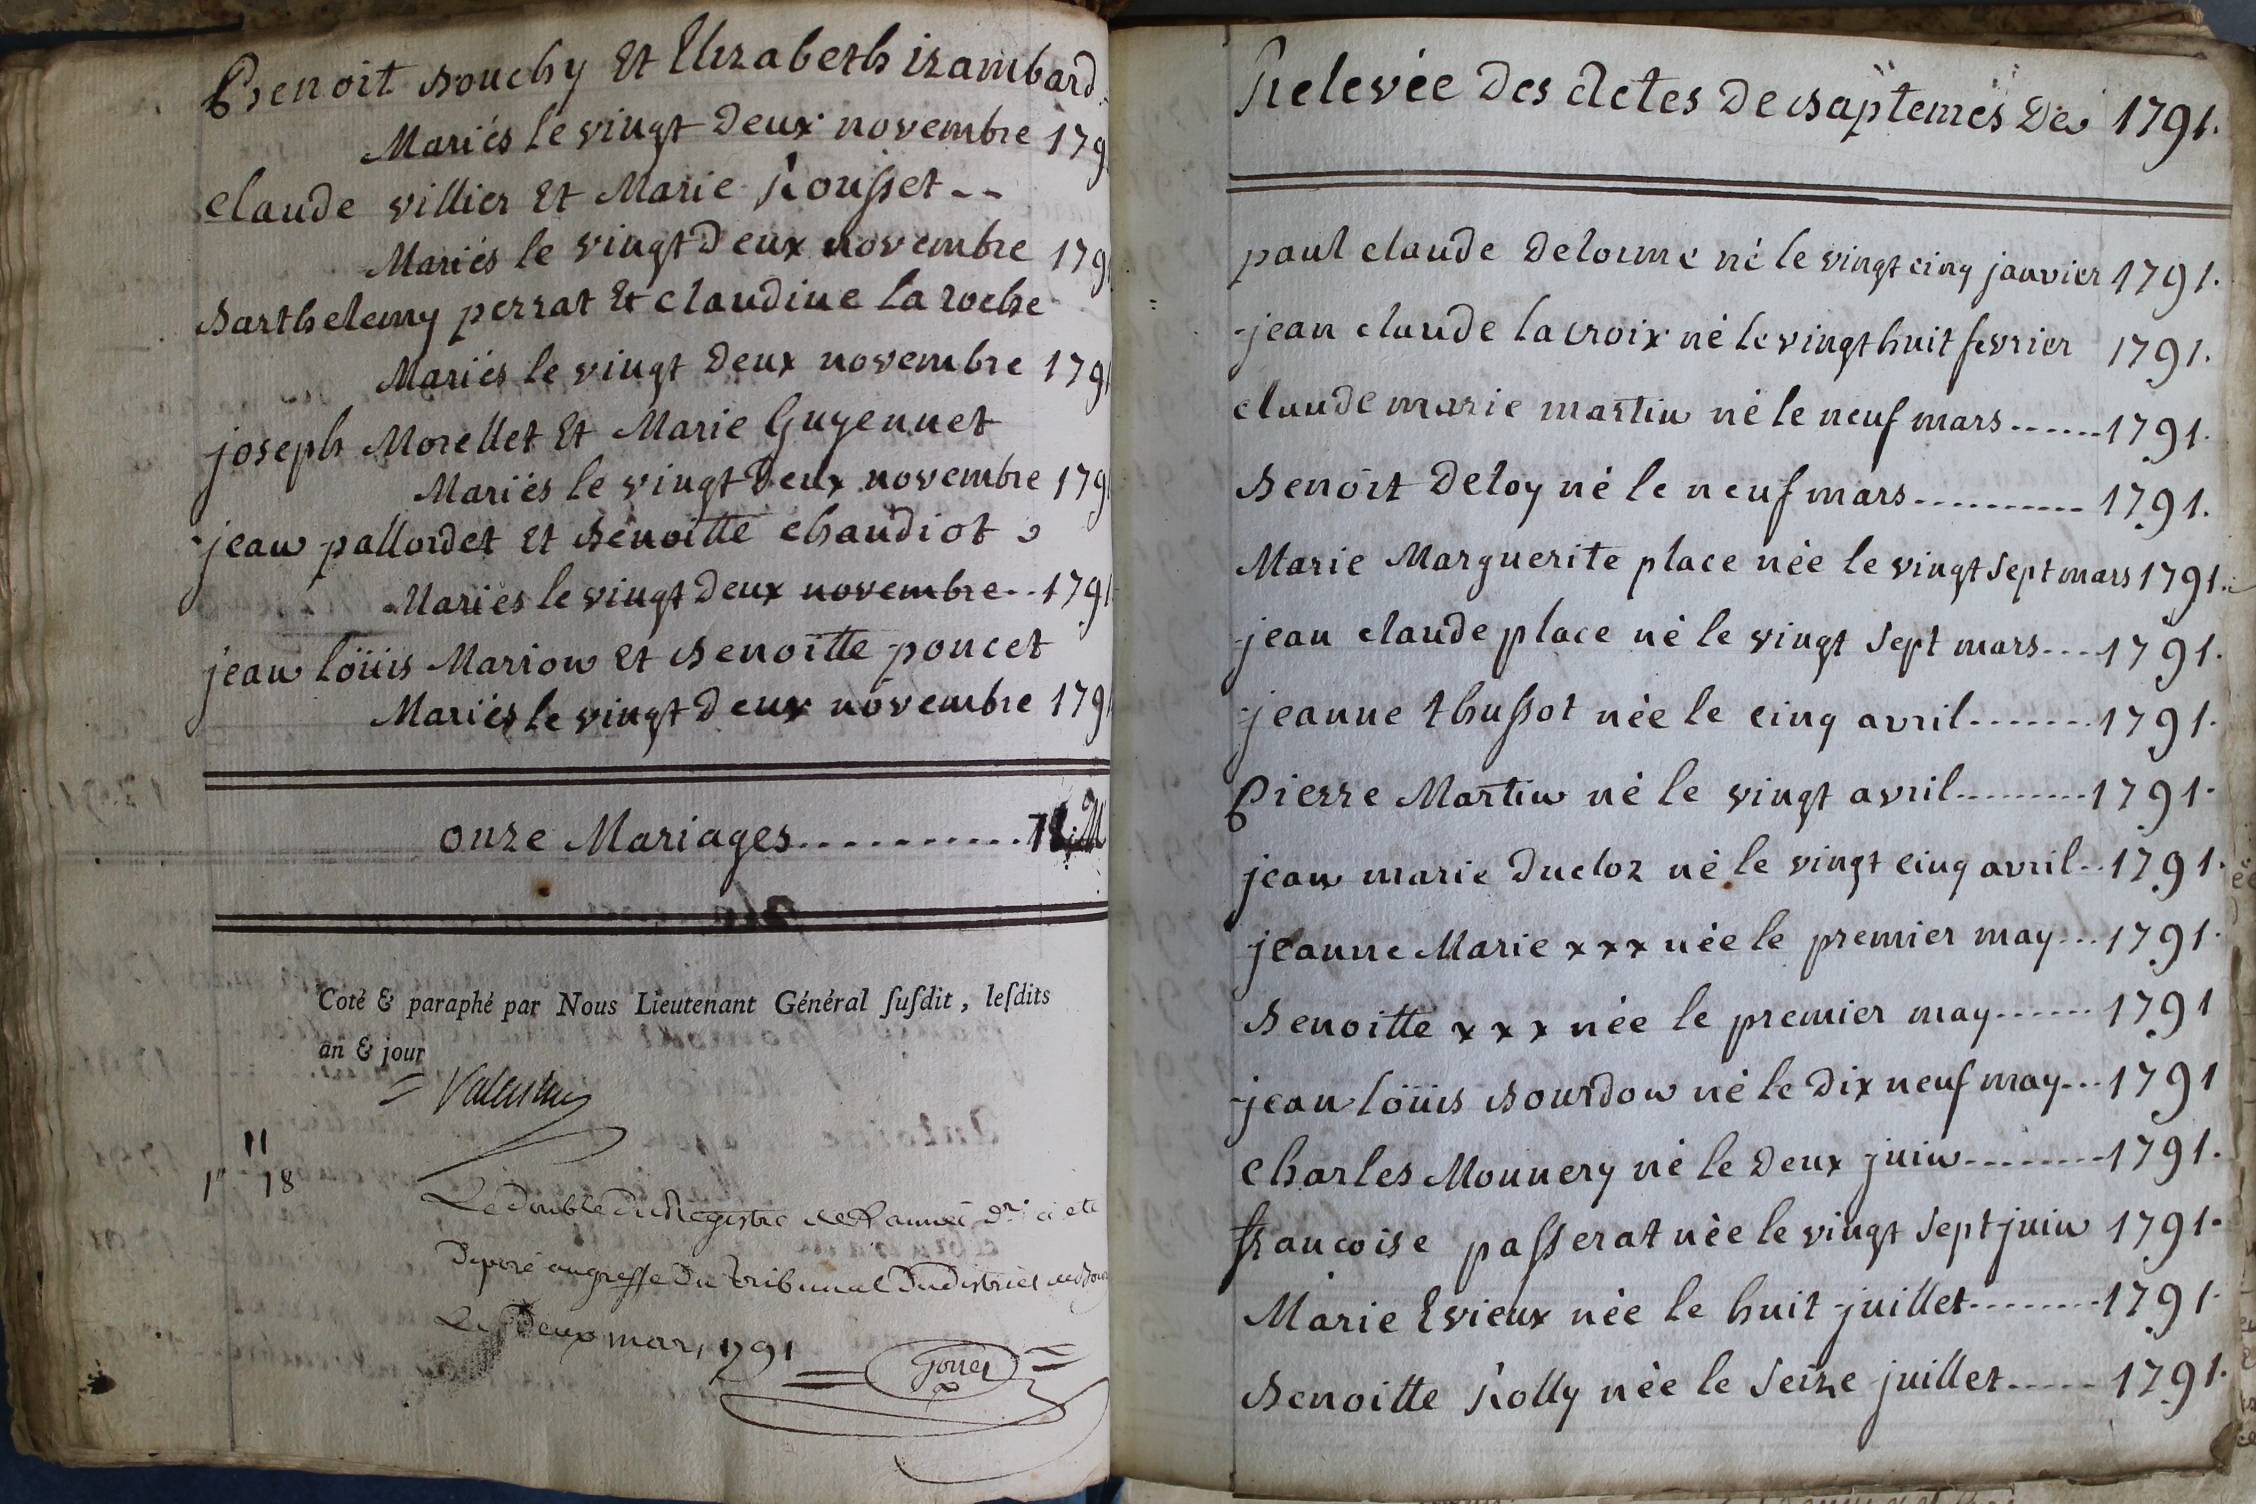 Benoit Bouchy Et Elizabeth izambard
Mariés le vingt Deux novembre 179
Claude villier Et Marie Rousset --
Mariés le vingt Deux novembre 179
Barthelemy perrat Et claudine la roche
Mariés le vingt Deux novembre 179
joseph Morellet Et Marie Guyennet
Mariés le vingt Deux novembre 179
jean pallordet Et Benoitte chaudiot
Mariés le vingt Deux novembre -- 1791
jean loüis Marion Et Benoitte poncet
Mariés le vingt Deux novembre 179
onze Mariages...........
Coté & paraphé par Nous Lieutenant Général ſuſdit, leſdits
an & jour
11
18
Le double du Registre de l'année dre a eté
Deposé au greffe Du tribunal Du district de
Le deux mars 1791
Relevée Des Actes De Baptemes De 1791.
paul claude Delorme né le vingt cinq janvier 1791.
jean claude lacroix né le vingt huit fevrier 1791.
claude marie martin né le neuf mars ------ 1791.
Benoit Deloy né le neuf mars ---------- 1791.
Marie Marguerite place née le vingt sept mars 1791.
jean claude place né le vingt sept mars --- 1791.
jeanne thussot née le cinq avril ------- 1791.
Pierre Martin né le vingt avril --------- 1791.
jean marie Ducloz né le vingt cinq avril -- 1791.
jeanne Marie x x x née le premier may --- 1791.
Benoitte x x x née le premier may ------ 1791
jean loüis Bourdon né le Dix neuf may --- 1791
charles Monnery né le Deux juin -------- 1791.
francoise passerat née le vingt sept juin 1791.
Marie Evieux née le huit juillet -------- 1791.
Benoitte Rolly née le seize juillet ----- 1791.